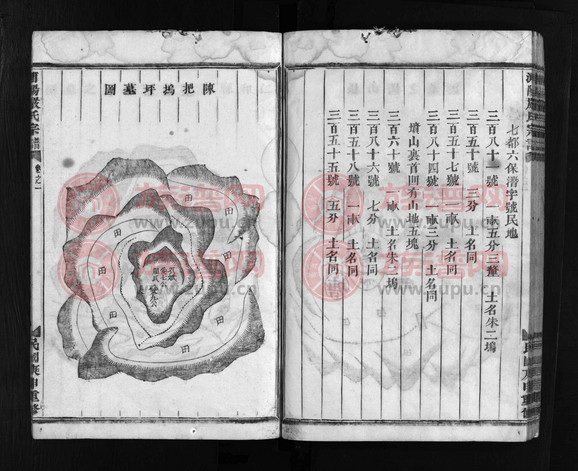 七都六保潛字號民地
三百八十一號 一畝五分三釐 土名朱二塢
三百五十號 三分 土名同
三百五十七號 一畝 土名同
三百八十四號 一畝三分 土名同
墳山裏首開有山地五塊
三百六十號 一畝 土名朱二塢
三百八十六號 七分 土名同
三百五十八號 一畝 土名同
三百五十五號 五分 土名同
陳把塢坪墓圖
田
田
田
田
田
田
田
嚴氏宗譜
卷之一
民國庚申重修
民國庚申重修
族譜网
www.zupu.cn